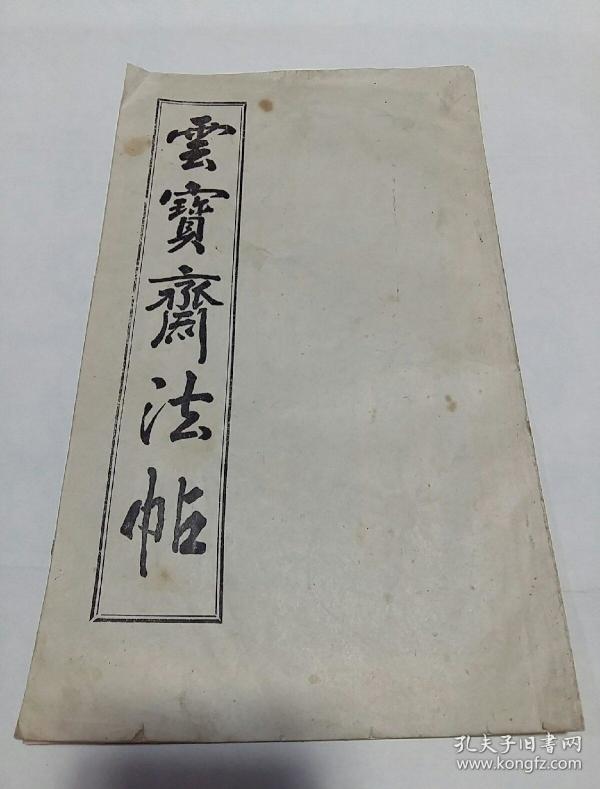 雲寶齋法帖
孔夫子旧书网
www.kongfz.com